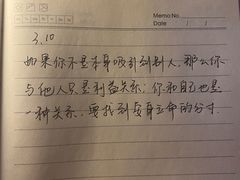 Memo No.
Date / /
3.10
如果你不是本身吸引到别人，那么你
与他人只是利益关系；你和自己也是
一种关系，要找到安身立命的分寸